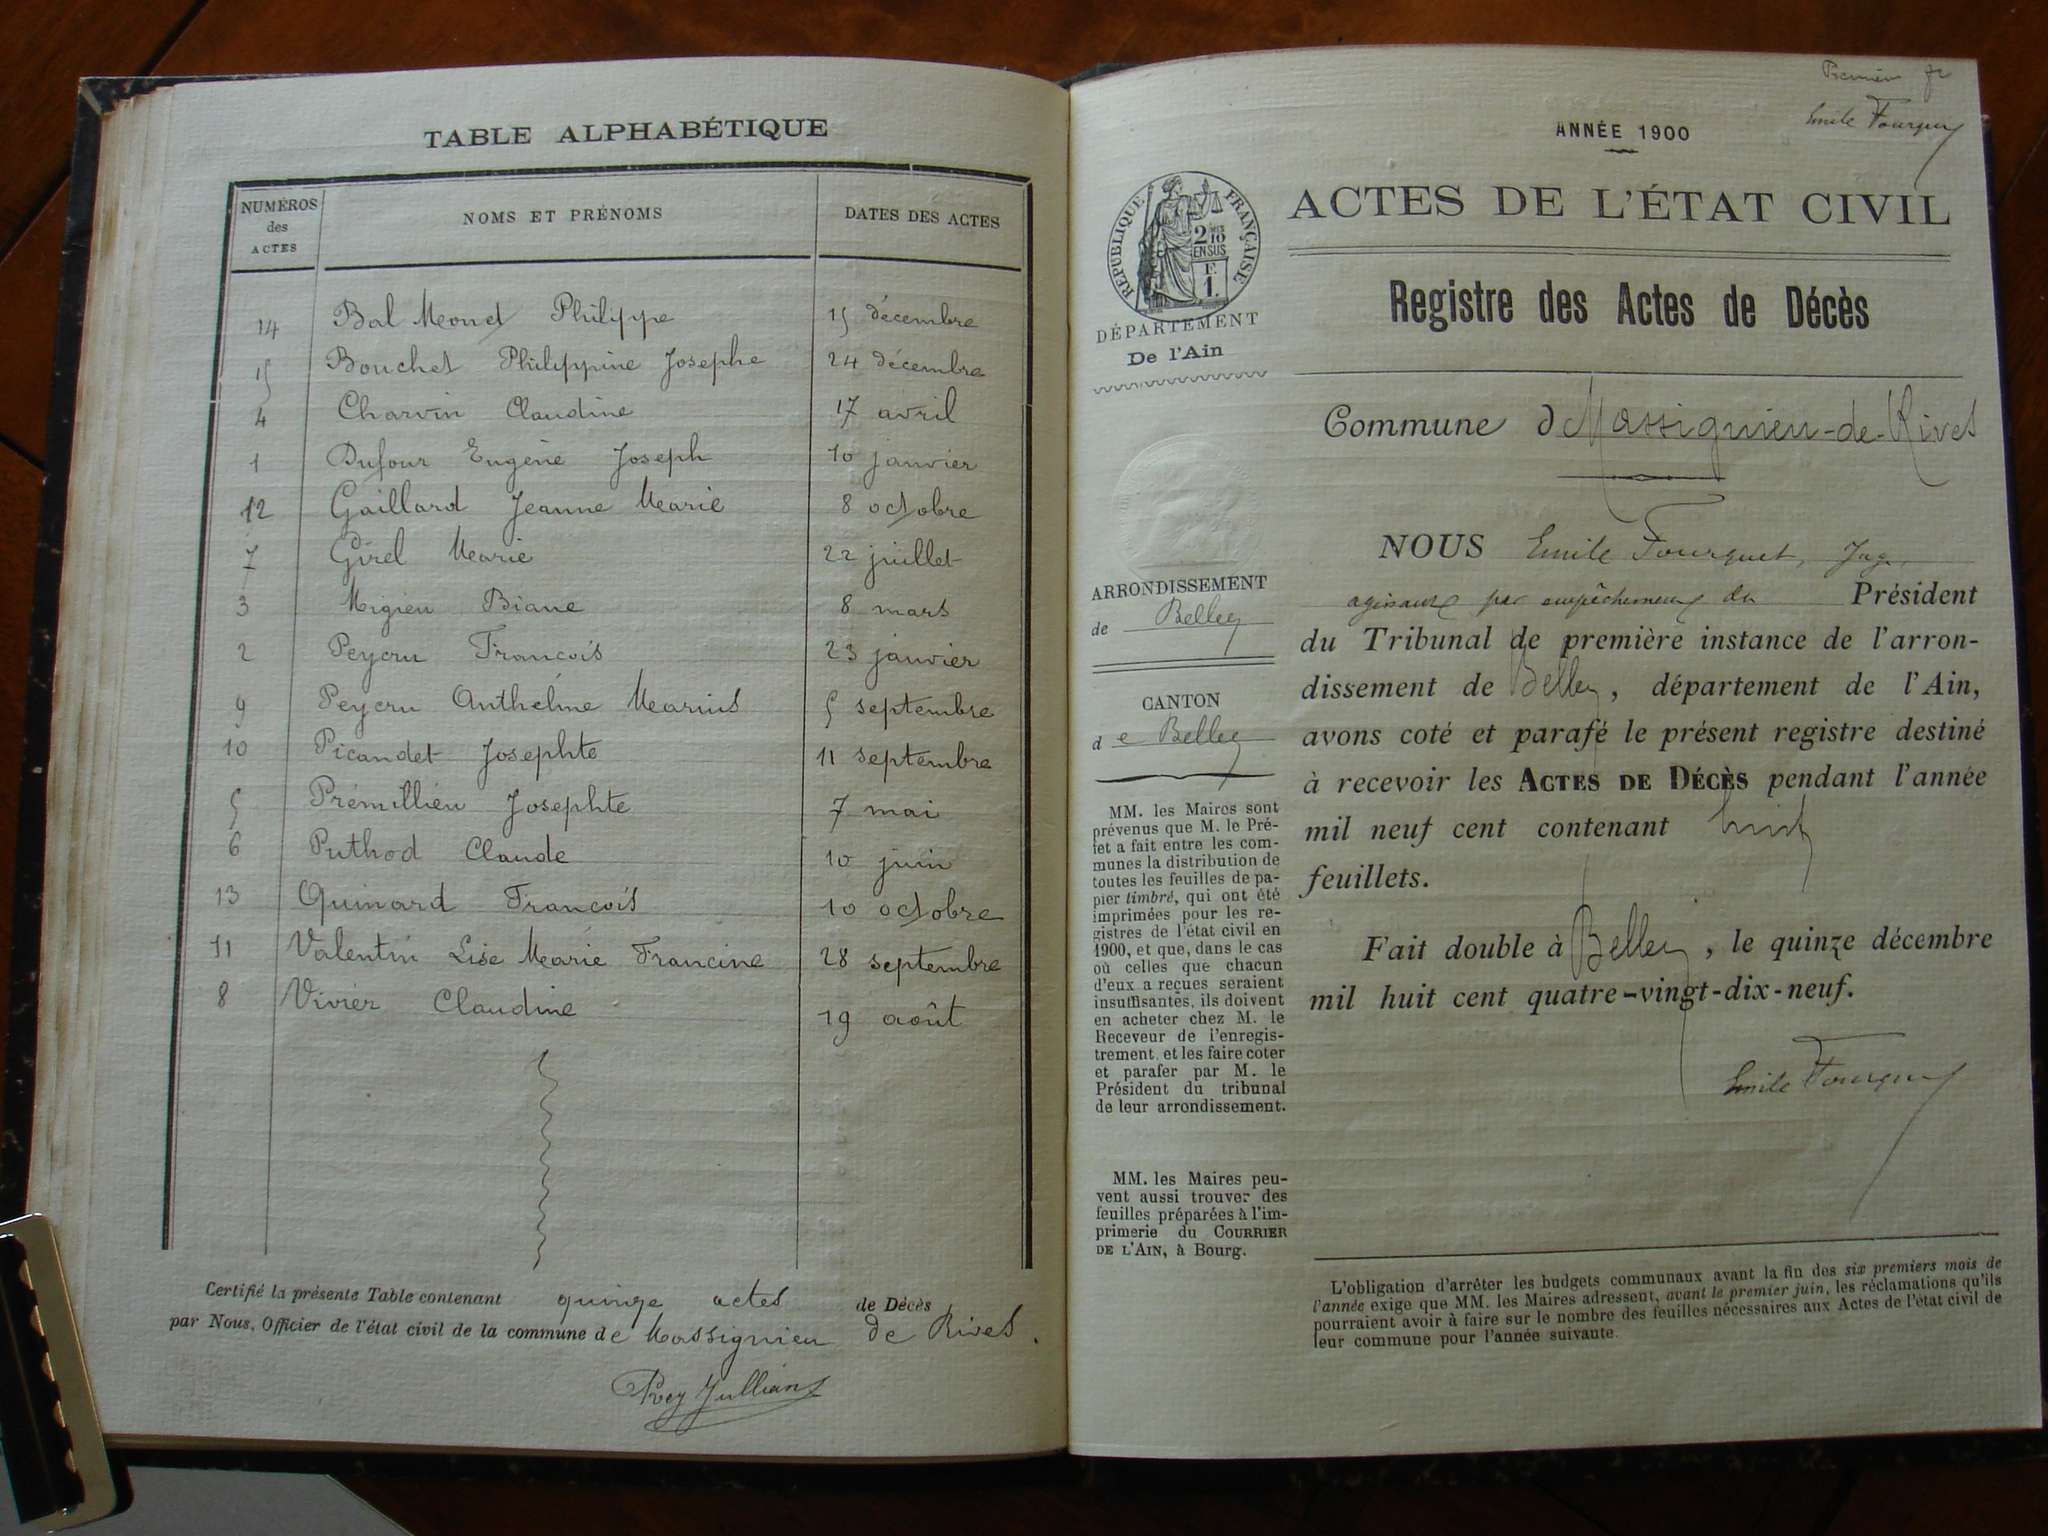 TABLE ALPHABÉTIQUE
NUMÉROS des ACTES NOMS ET PRÉNOMS DATES DES ACTES
14 Bal Mond Philippe 15 décembre
15 Bouchet Philippine Josephe 24 décembre
4 Charvin Claudine 17 avril
1 Dufour Eugène Joseph 10 janvier
12 Gaillard Jeanne Marie 8 octobre
7 Girel Marie 22 juillet
3 Migieu Biane 8 mars
2 Peycru François 23 janvier
9 Peycru Anthelme Marius 5 septembre
10 Picandet Josephte 11 septembre
5 Prémillieu Josephte 7 mai
6 Puthod Claude 10 juin
13 Quinard François 10 octobre
11 Valentin Lise Marie Francine 28 septembre
8 Vivier Claudine 19 août
Certifié la présente Table contenant quinze actes de Décès
par Nous, Officier de l'état civil de la commune de Massignieu de Rives.
Rey Jullian
Premier
Emile Fourquet
ANNÉE 1900
ACTES DE L'ÉTAT CIVIL
Registre des Actes de Décès
Commune d Massignieu-de-Rives
NOUS Emile Fourquet, Juge
agissant par empêchement du Président
du Tribunal de première instance de l'arron-
dissement de Belley, département de l'Ain,
avons coté et parafé le présent registre destiné
à recevoir les ACTES DE DÉCÈS pendant l'année
mil neuf cent contenant huit
feuillets.
Fait double à Belley, le quinze décembre
mil huit cent quatre-vingt-dix-neuf.
Emile Fourquet
RÉPUBLIQUE FRANÇAISE
2/10
EN SUS
F.
1.
DÉPARTEMENT
De l'Ain
ARRONDISSEMENT
de Belley
CANTON
de Belley
MM. les Maires sont
prévenus que M. le Pré-
fet a fait entre les com-
munes la distribution de
toutes les feuilles de pa-
pier timbré, qui ont été
imprimées pour les re-
gistres de l'état civil en
1900, et que, dans le cas
où celles que chacun
d'eux a reçues seraient
insuffisantes, ils doivent
en acheter chez M. le
Receveur de l'enregis-
trement et les faire coter
et parafer par M. le
Président du tribunal
de leur arrondissement.
MM. les Maires peu-
vent aussi trouver des
feuilles préparées à l'im-
primerie du COURRIER
DE L'AIN, à Bourg.
L'obligation d'arrêter les budgets communaux avant la fin des six premiers mois de
l'année exige que MM. les Maires adressent, avant le premier juin, les réclamations qu'ils
pourraient avoir à faire sur le nombre des feuilles nécessaires aux Actes de l'état civil de
leur commune pour l'année suivante.